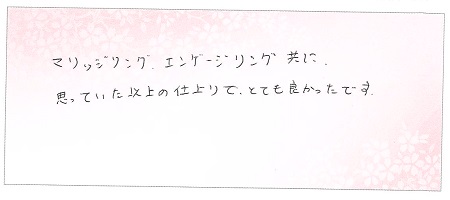 マリッジリング、エンゲージリング共に、
思っていた以上の仕上りで、とても良かったです。